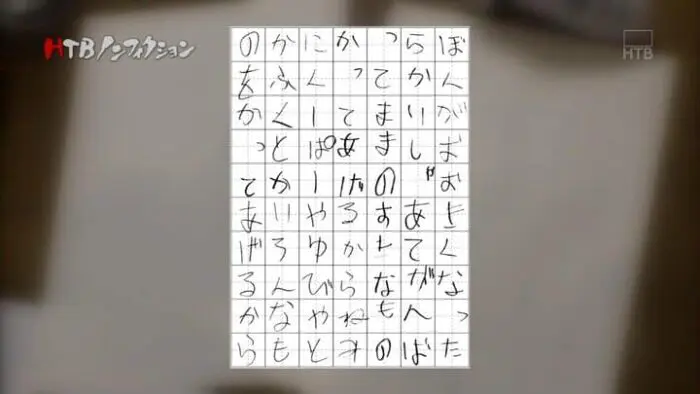 ぼんがおおきくなった
らかりしゃあてがんば
ってままのすきなもの
かってあげるからねみ
にくーぱーやゆびやと
かふくとかいろんなも
のをかってあげるから
HTBノンフィクション
HTB